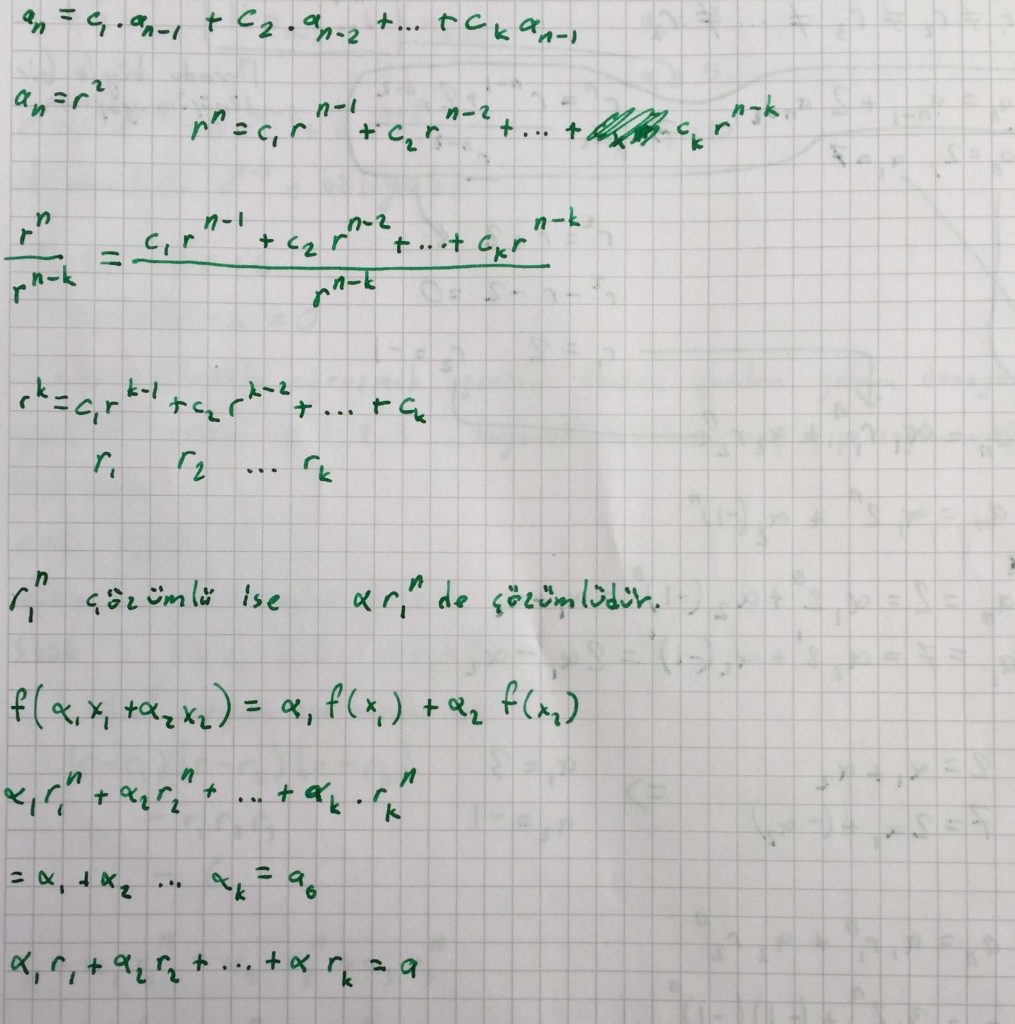 aₙ = c₁ . aₙ₋₁ + c₂ . aₙ₋₂ + ... + cₖ aₙ₋₁
aₙ = r²
rⁿ = c₁ rⁿ⁻¹ + c₂ rⁿ⁻² + ... + cₖ rⁿ⁻ᵏ
rⁿ / rⁿ⁻ᵏ = (c₁ rⁿ⁻¹ + c₂ rⁿ⁻² + ... + cₖ rⁿ⁻ᵏ) / rⁿ⁻ᵏ
rᵏ = c₁ rᵏ⁻¹ + c₂ rᵏ⁻² + ... + cₖ
r₁ r₂ ... rₖ
r₁ⁿ çözümlü ise α r₁ⁿ de çözümlüdür.
f(α₁ x₁ + α₂ x₂) = α₁ f(x₁) + α₂ f(x₂)
α₁ r₁ⁿ + α₂ r₂ⁿ + ... + αₖ . rₖⁿ
= α₁ + α₂ ... αₖ = a₀
α₁ r₁ + α₂ r₂ + ... + α rₖ = a